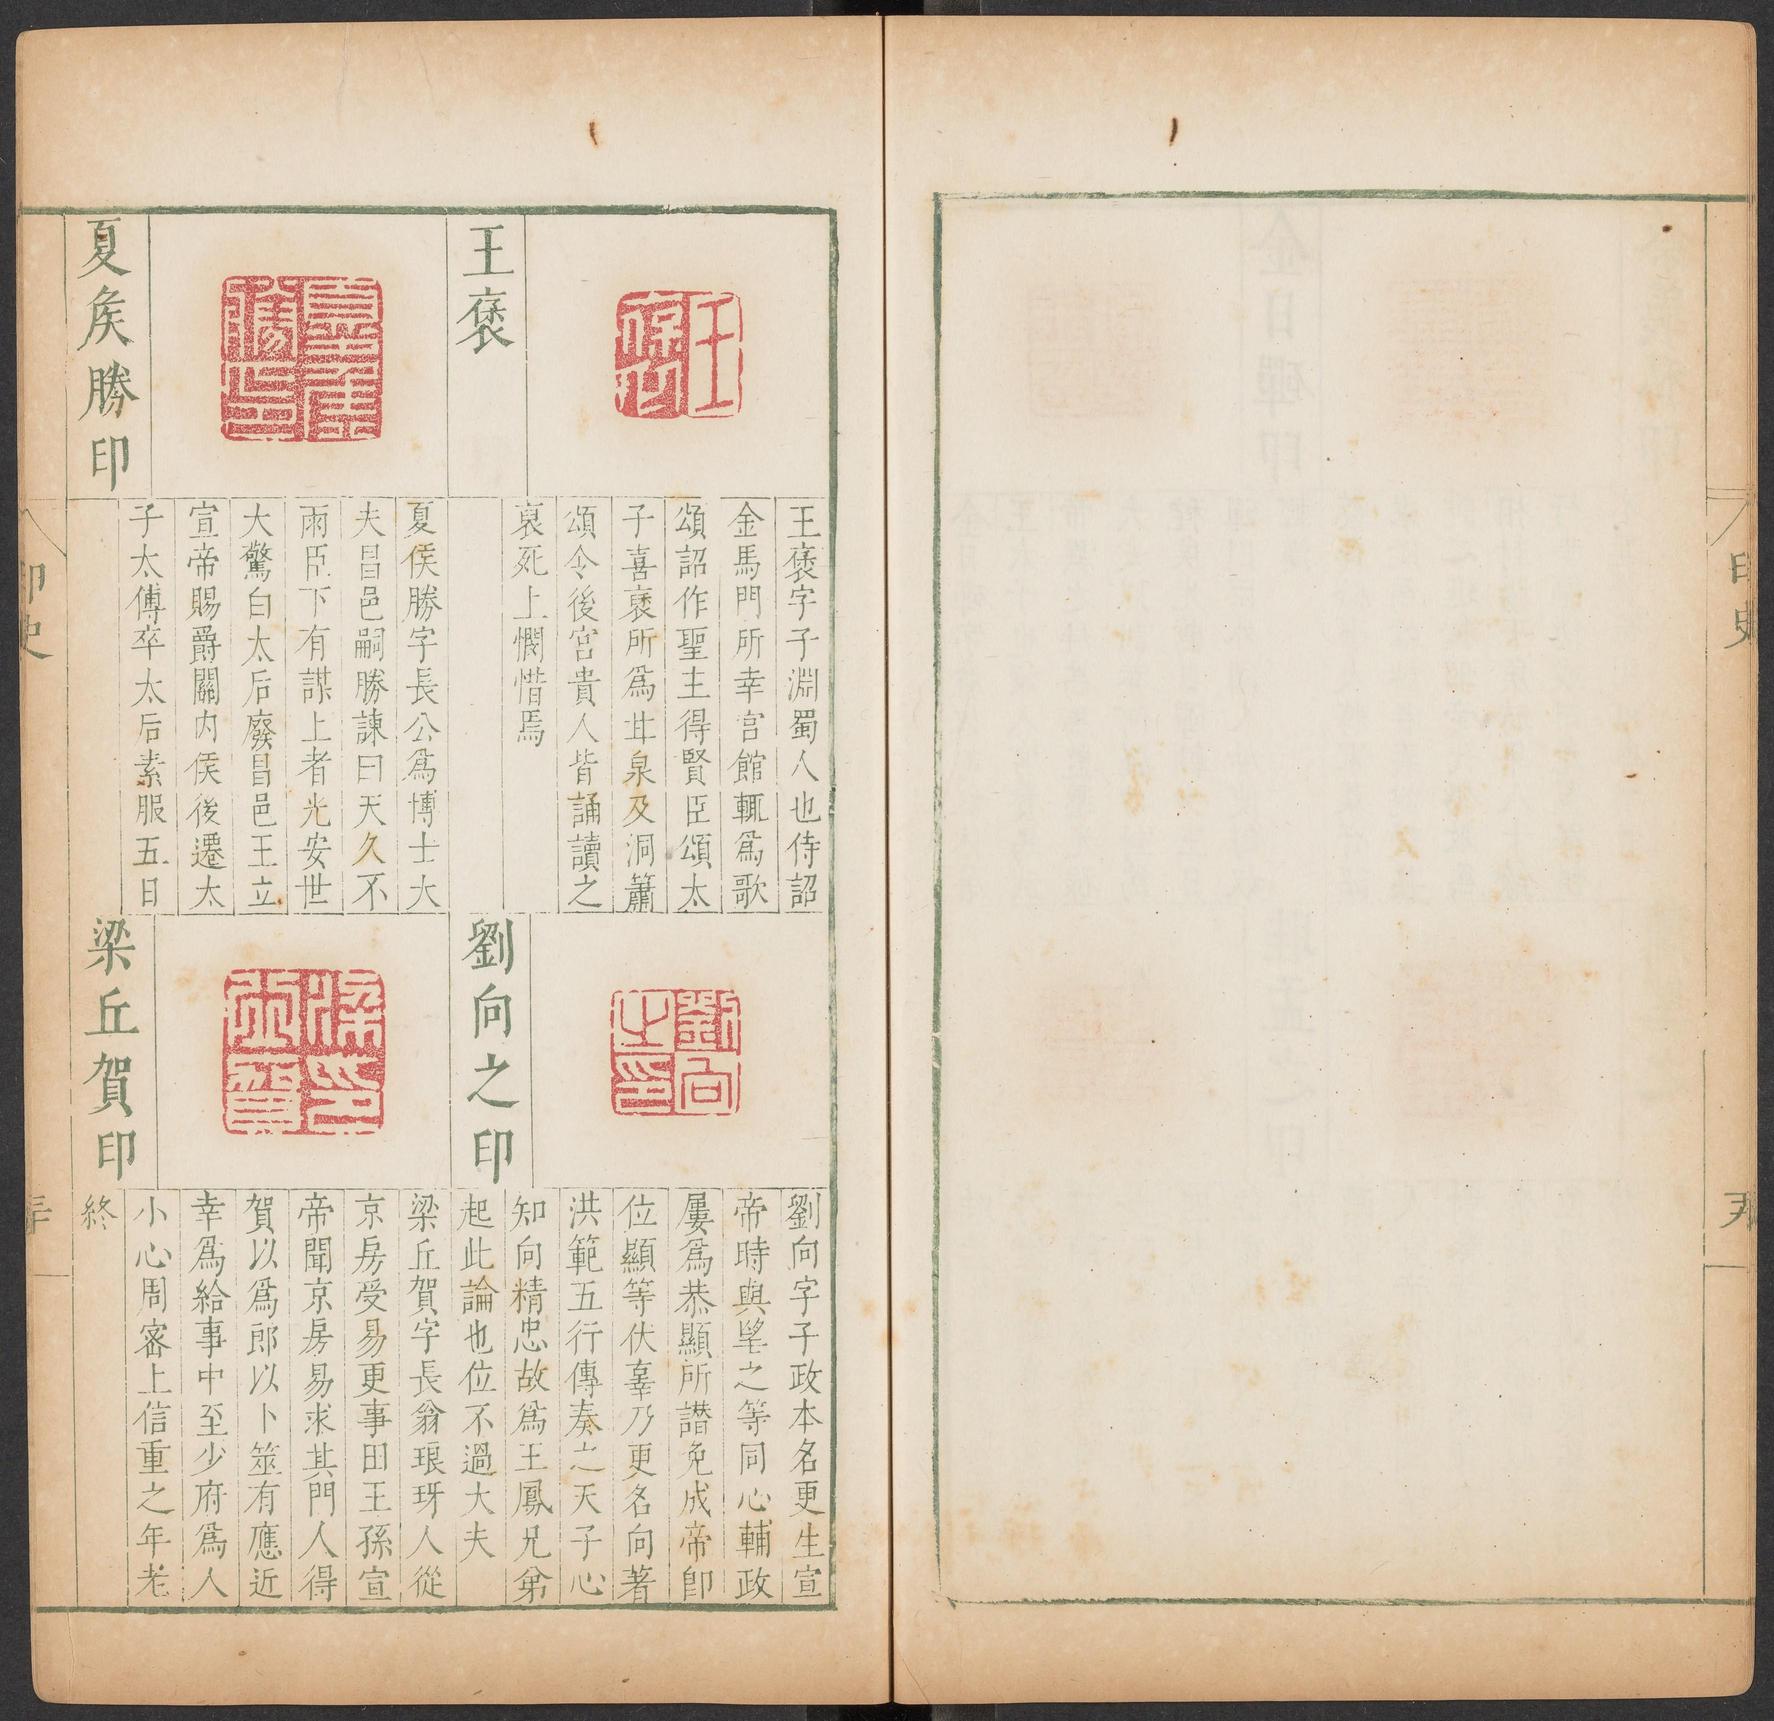 王褒
王褒字子淵蜀人也侍詔
金馬門所幸宮館輒爲歌
頌詔作聖主得賢臣頌太
子喜襃所爲甘泉及洞簫
頌令後宮貴人皆誦讀之
襃死上憫惜焉
夏矦勝印
夏侯勝字長公爲博士大
夫昌邑嗣勝諫曰天久不
雨臣下有謀上者光安世
大驚白太后廢昌邑王立
宣帝賜爵關內侯後遷太
子太傅卒太后素服五日
劉向之印
劉向字子政本名更生宣
帝時與望之等同心輔政
屢爲恭顯所譖免成帝卽
位顯等伏辜乃更名向著
洪範五行傳奏之天子心
知向精忠故爲王鳳兄弟
起此論也位不過大夫
梁丘賀印
梁丘賀字長翁琅玡人從
京房受易更事田王孫宣
帝聞京房易求其門人得
賀以爲郎以卜筮有應近
幸爲給事中至少府爲人
小心周密上信重之年老
終
印史
印史
王褒
劉向之印
梁丘賀印